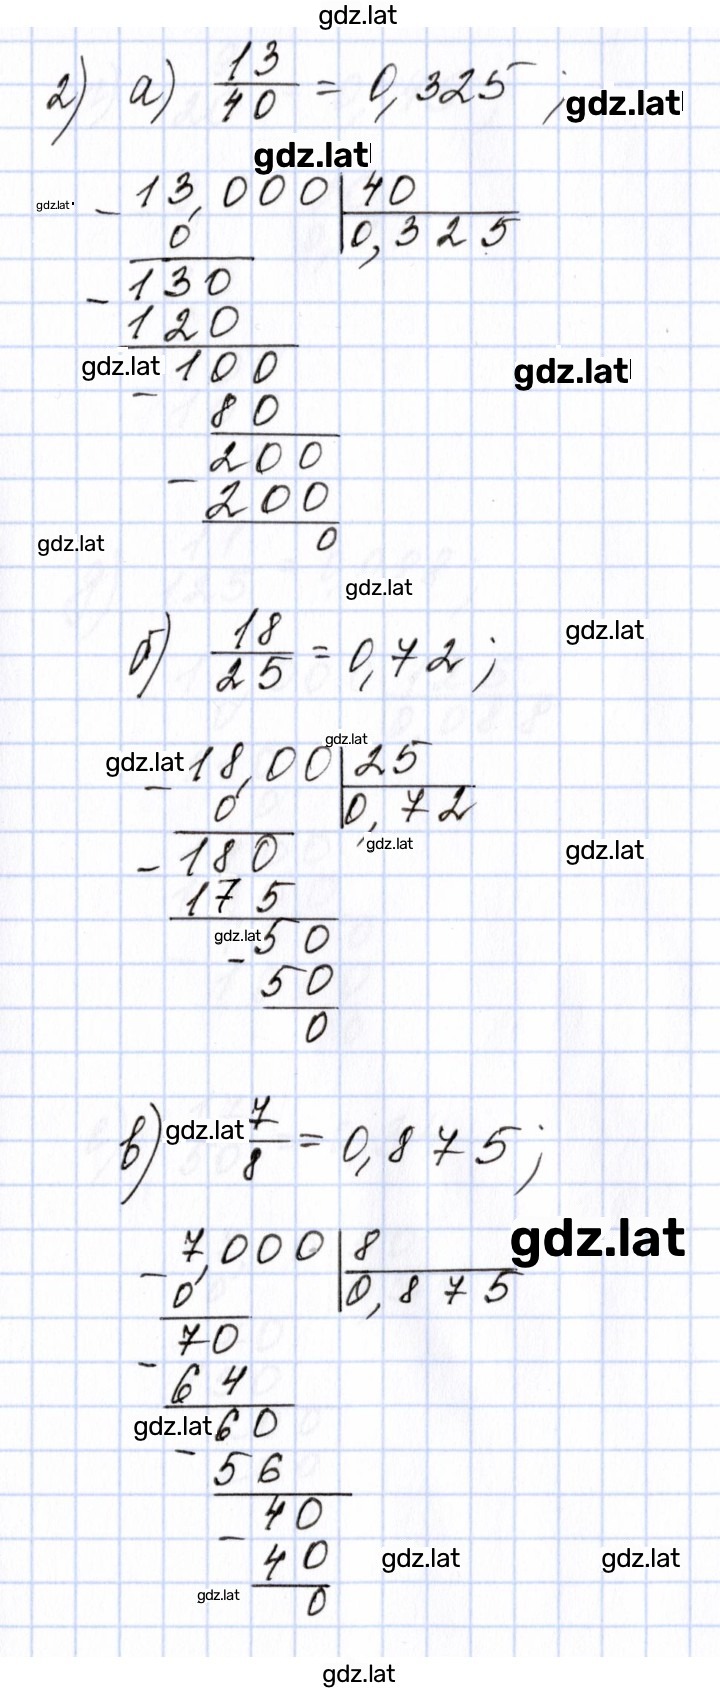 gdz.lat
2) а) 13/40 = 0,325 ; gdz.lat
gdz.lat
gdz.lat - 13,000 | 40
0 | 0,325
- 130
120
gdz.lat 100 gdz.lat
- 80
200
- 200
gdz.lat 0
gdz.lat
б) 18/25 = 0,72 ; gdz.lat
gdz.lat
gdz.lat - 18,00 | 25
0 | 0,72
gdz.lat gdz.lat
- 180
175
gdz.lat 50
- 50
0
в) gdz.lat 7/8 = 0,875 ;
gdz.lat
- 7,000 | 8
0 | 0,875
70
- 64
gdz.lat 60
- 56
40
- 40 gdz.lat gdz.lat
gdz.lat 0
gdz.lat